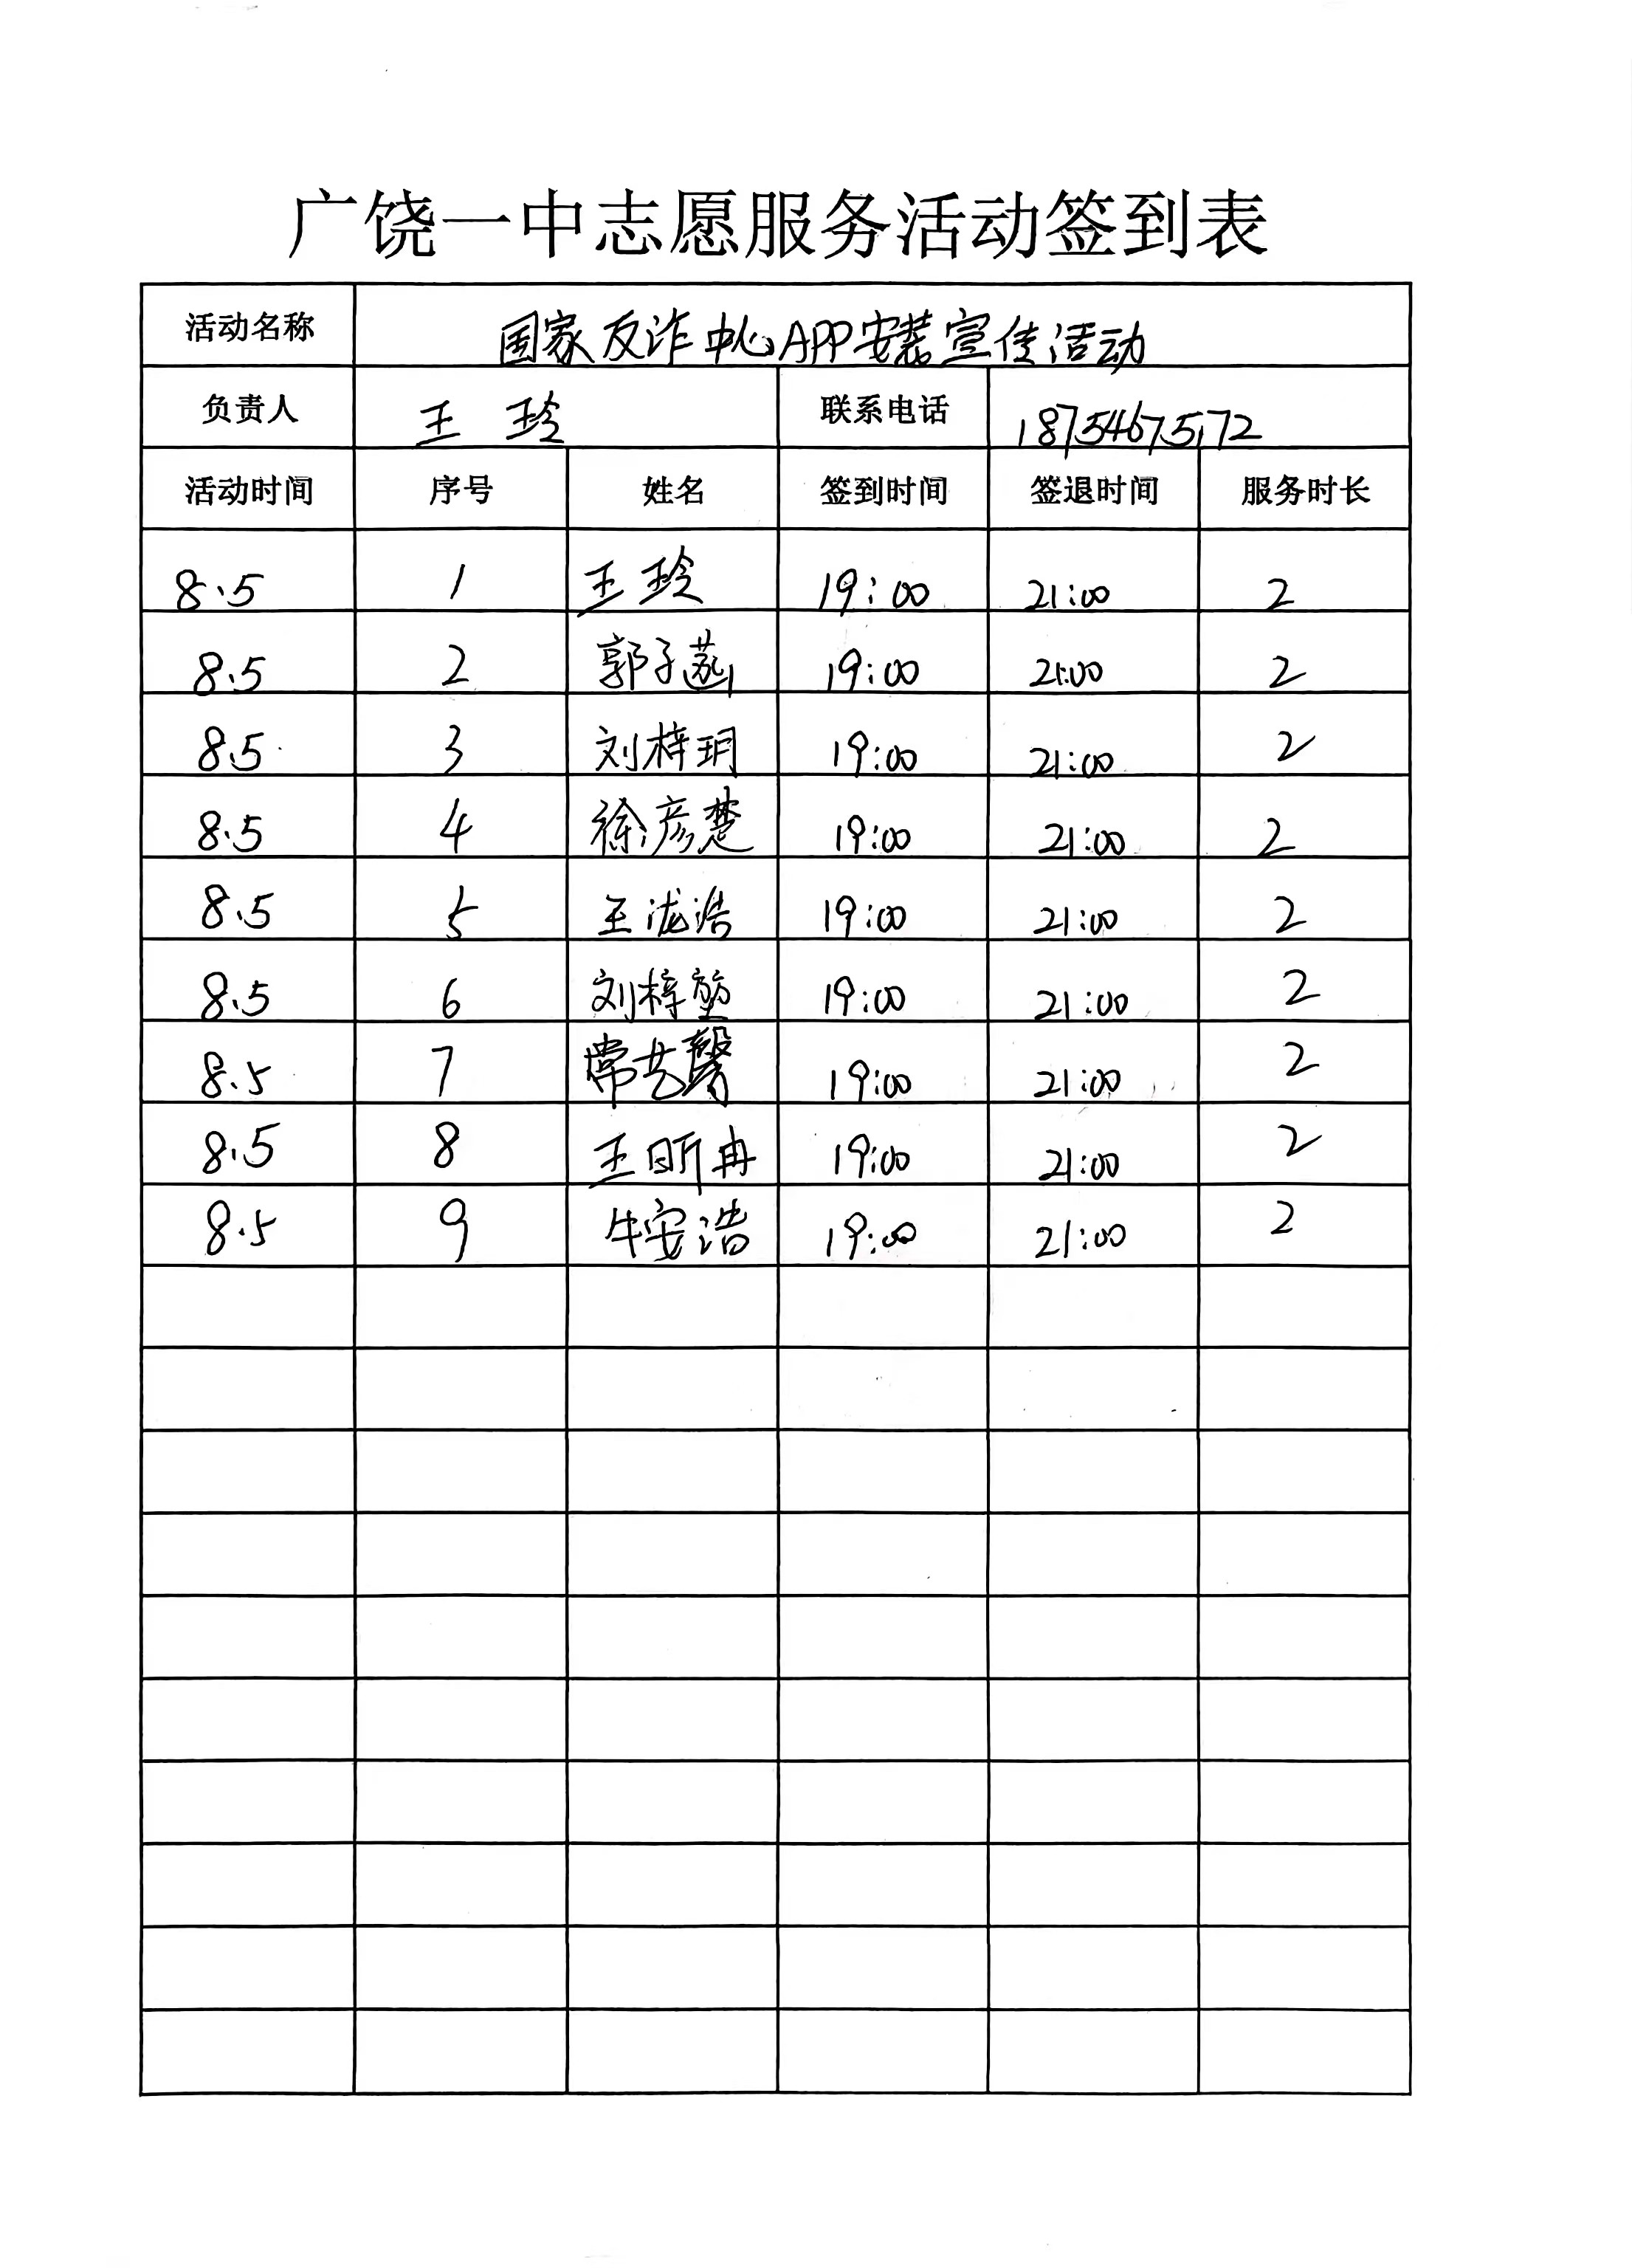 广饶一中志愿服务活动签到表
活动名称 国家反诈中心APP安装宣传活动
负责人 王玲 联系电话 18754675172
活动时间 序号 姓名 签到时间 签退时间 服务时长
8.5 1 王玲 19:00 21:00 2
8.5 2 郭子 19:00 21:00 2
8.5 3 刘梓玥 19:00 21:00 2
8.5 4 徐彦楚 19:00 21:00 2
8.5 5 王泷浩 19:00 21:00 2
8.5 6 刘梓堃 19:00 21:00 2
8.5 7 常艺馨 19:00 21:00 2
8.5 8 王昕冉 19:00 21:00 2
8.5 9 牛安浩 19:00 21:00 2